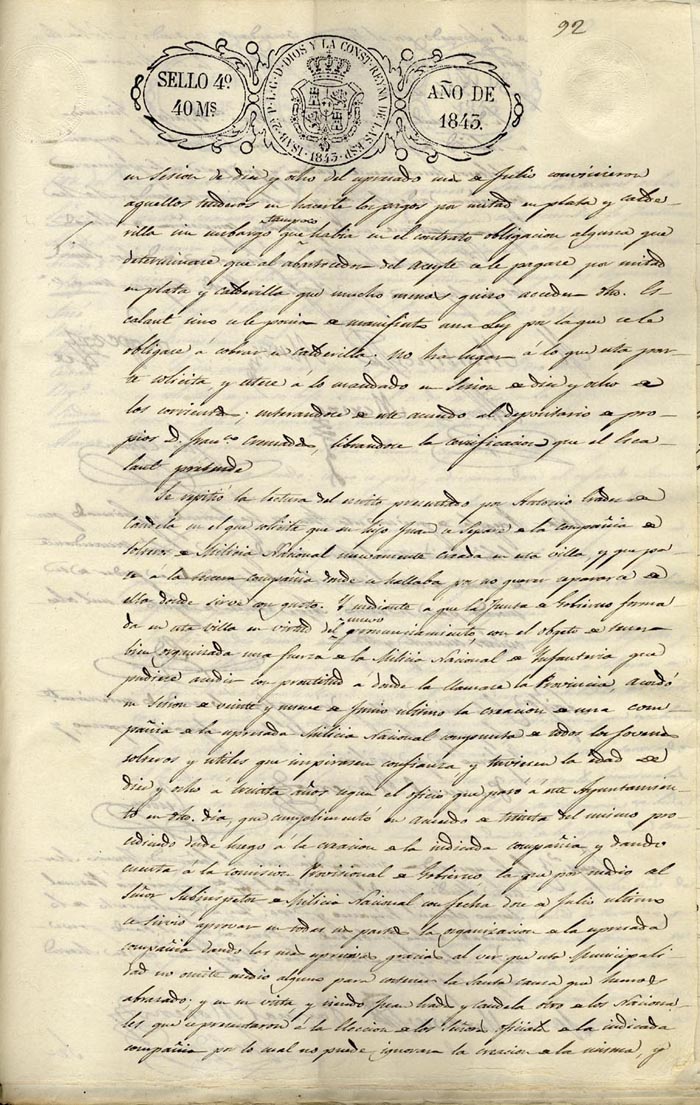 92
SELLO 4º
40 Ms.
ISAB. 2ª P. L. G. D. DIOS Y LA CONST. REYNA DE LAS ESP.
1843.
AÑO DE
1843.
en sesion de dia y ocho del apresado mes de Julio convinieron
aquellos en hacerle los pagos por mitad en plata y calde-
rilla sin embargo tampoco que habia en el contrato obligacion alguna que
determinare que al abastecedor del aceyte se le pagare por mitad
en plata y calderilla que mucho menos quiso acceder dho. Es-
calant sino se le ponia de manifiesto una Ley por la que se le
obligare á cobrar en calderilla; no ha lugar á lo que esta par-
te solicita, y estese á lo mandado en sesion de diez y ocho de
los corrientes; enterandose de este acuerdo al depositario de pro-
pios D. Franco. librandose la certificacion que el Esca-
lant pretende
Se repitió la lectura del escrito presentado por Antonio de
Candela en el que solicita que su hijo Juan se separe de la compañia de
solteros de Milicia Nacional nuevamente creada en esta villa, y que pa-
se á la compañia donde se hallaba por no querer separarse de
ella donde sirve con gusto. Y mediante a que la Junta de Gobierno forma-
da en esta villa en virtud del nuevo pronunciamiento, con el objeto de tener
bien organizada una fuerza de la Milicia Nacional de Infanteria que
pudiese acudir con prontitud a donde la llamare la Provincia, acordó
en sesion de veinte y nueve de Junio ultimo la creacion de una com-
pañia de la apresada Milicia Nacional compuesta de todos los jovenes
solteros y utiles que inspirasen confianza, y tuviesen la edad de
diez y ocho á treinta años segun el oficio que pasó á este Ayuntamien-
to en dho. dia, que cumplimentó en acuerdo de treinta del mismo pro-
cediendo desde luego á la creacion de la indicada compañia y dando
cuenta á la comision Provisional de Gobierno la que por medio del
Señor Subinspector de Milicia Nacional con fecha doce de Julio ultimo
se sirvio aprovar en todas sus partes la organizacion de la apresada
compañia dando las mas gracias al ver que esta Municipali-
dad no omite medio alguno para sostener la Santa causa que hemos
abrazado: y en su vista y siendo Juan y Candela otro de los Naciona-
les que se presentaron á la eleccion de los Señores oficiales de la indicada
compañia por lo cual no puede ignorar la creacion de la misma, y